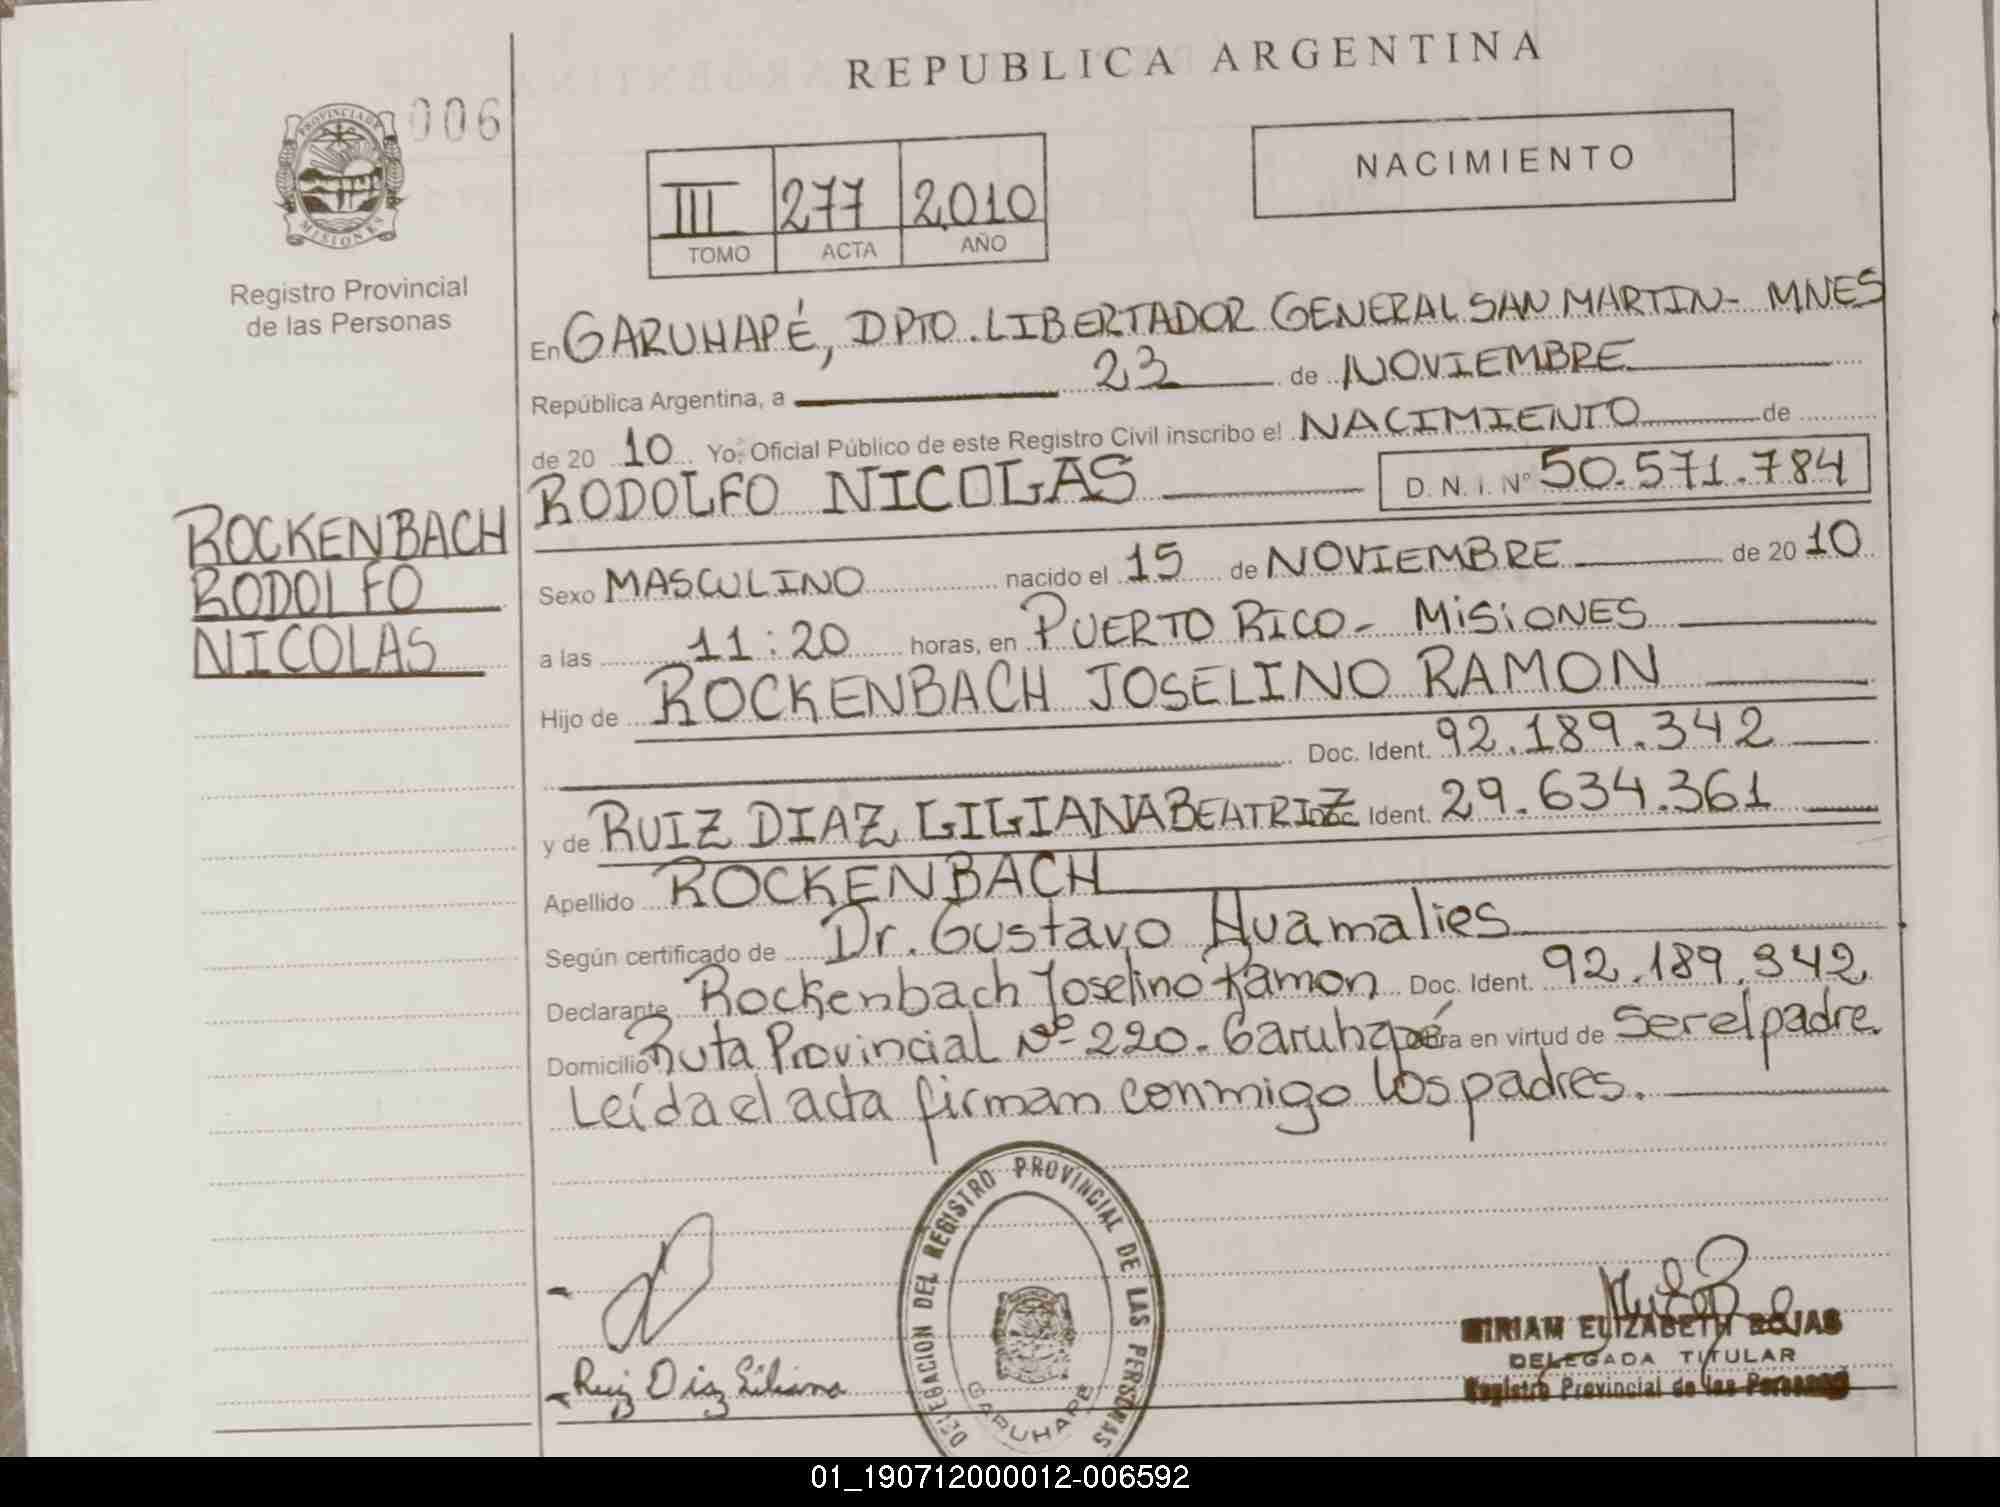 REPUBLICA ARGENTINA
006
PROVINCIA DE MISIONES
Registro Provincial
de las Personas
III 277 2,010
TOMO ACTA AÑO
NACIMIENTO
En GARUHAPÉ, DPTO. LIBERTADOR GENERAL SAN MARTIN - MNES
República Argentina, a 23 de NOVIEMBRE
de 20 10 Yo, Oficial Público de este Registro Civil inscribo el NACIMIENTO de
RODOLFO NICOLAS D. N. I. Nº 50.571.784
ROCKENBACH
RODOLFO
NICOLAS
Sexo MASCULINO nacido el 15 de NOVIEMBRE de 20 10
a las 11:20 horas, en PUERTO RICO - MISIONES
Hijo de ROCKENBACH JOSELINO RAMON
Doc. Ident. 92.189.342
y de RUIZ DIAZ LILIANA BEATRIZ Doc. Ident. 29.634.361
Apellido ROCKENBACH
Según certificado de Dr. Gustavo Huamalies
Declarante Rockenbach Joselino Ramon Doc. Ident. 92.189.342
Domicilio Ruta Provincial Nº 220. Garuhapé obra en virtud de ser el padre.
Leída el acta firman conmigo los padres.
DELEGACION DEL REGISTRO PROVINCIAL DE LAS PERSONAS
GARUHAPE
Ruiz Diaz Liliana
MIRIAM ELIZABETH ROJAS
DELEGADA TITULAR
Registro Provincial de las Personas
01_190712000012-006592